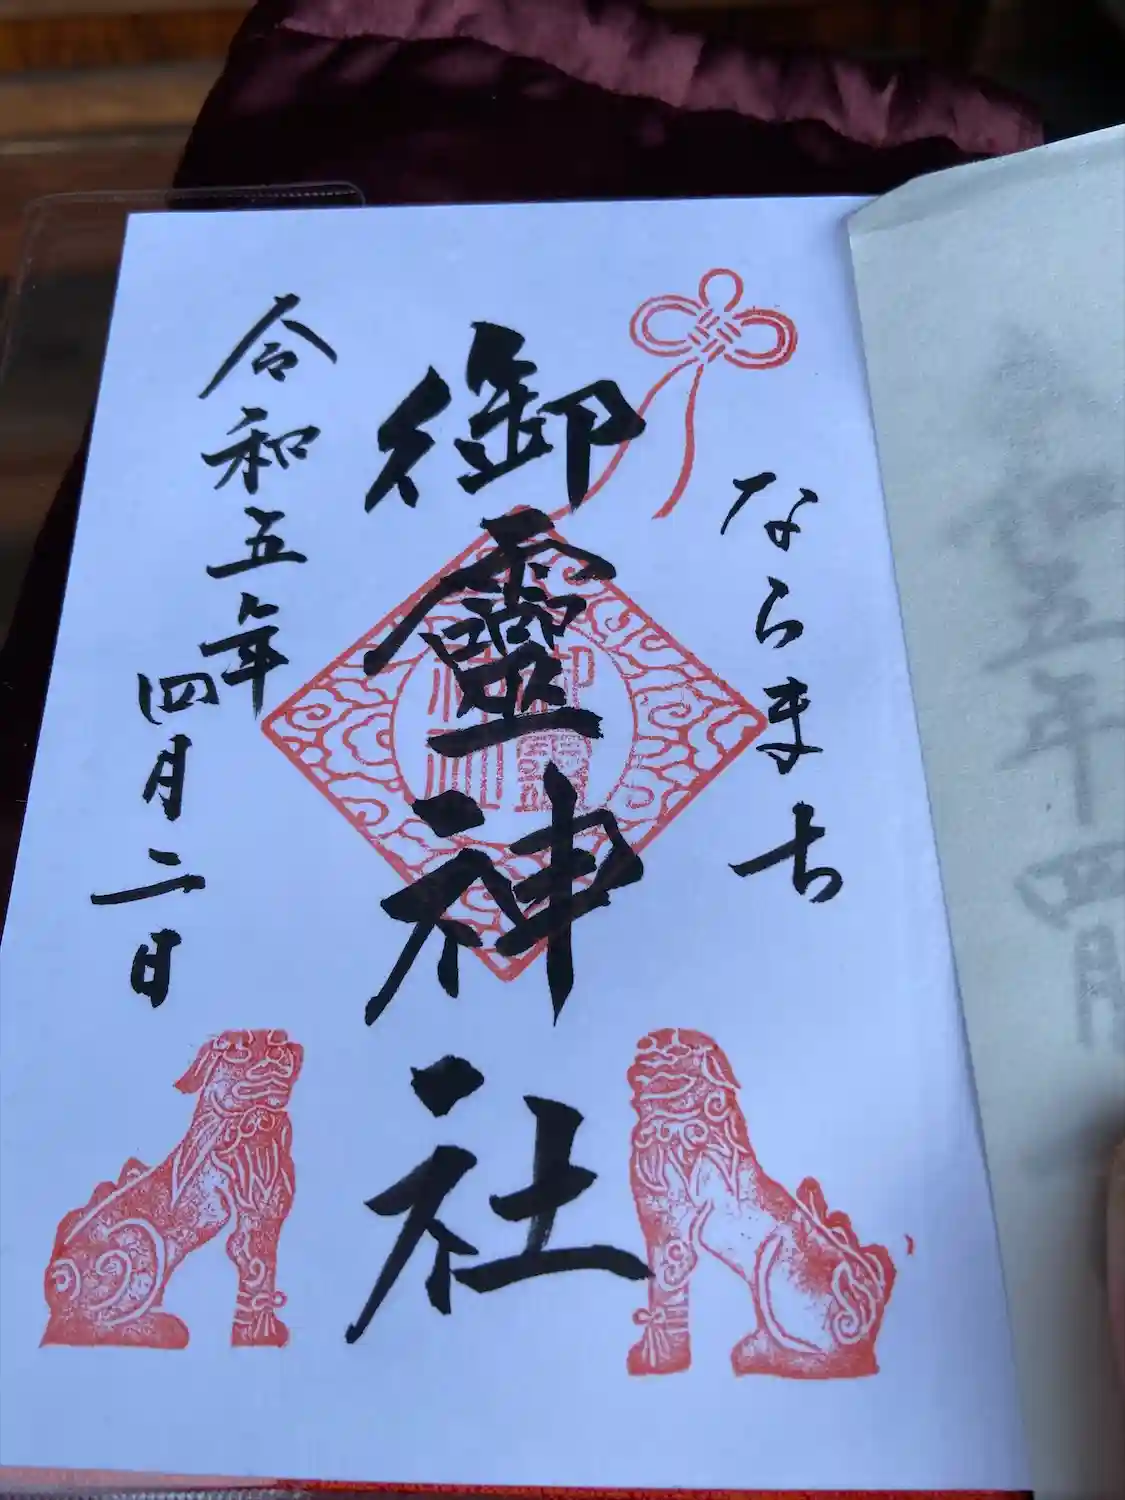 ならまち
御靈神社
令和五年
四月二日
御靈
神社
五年四月